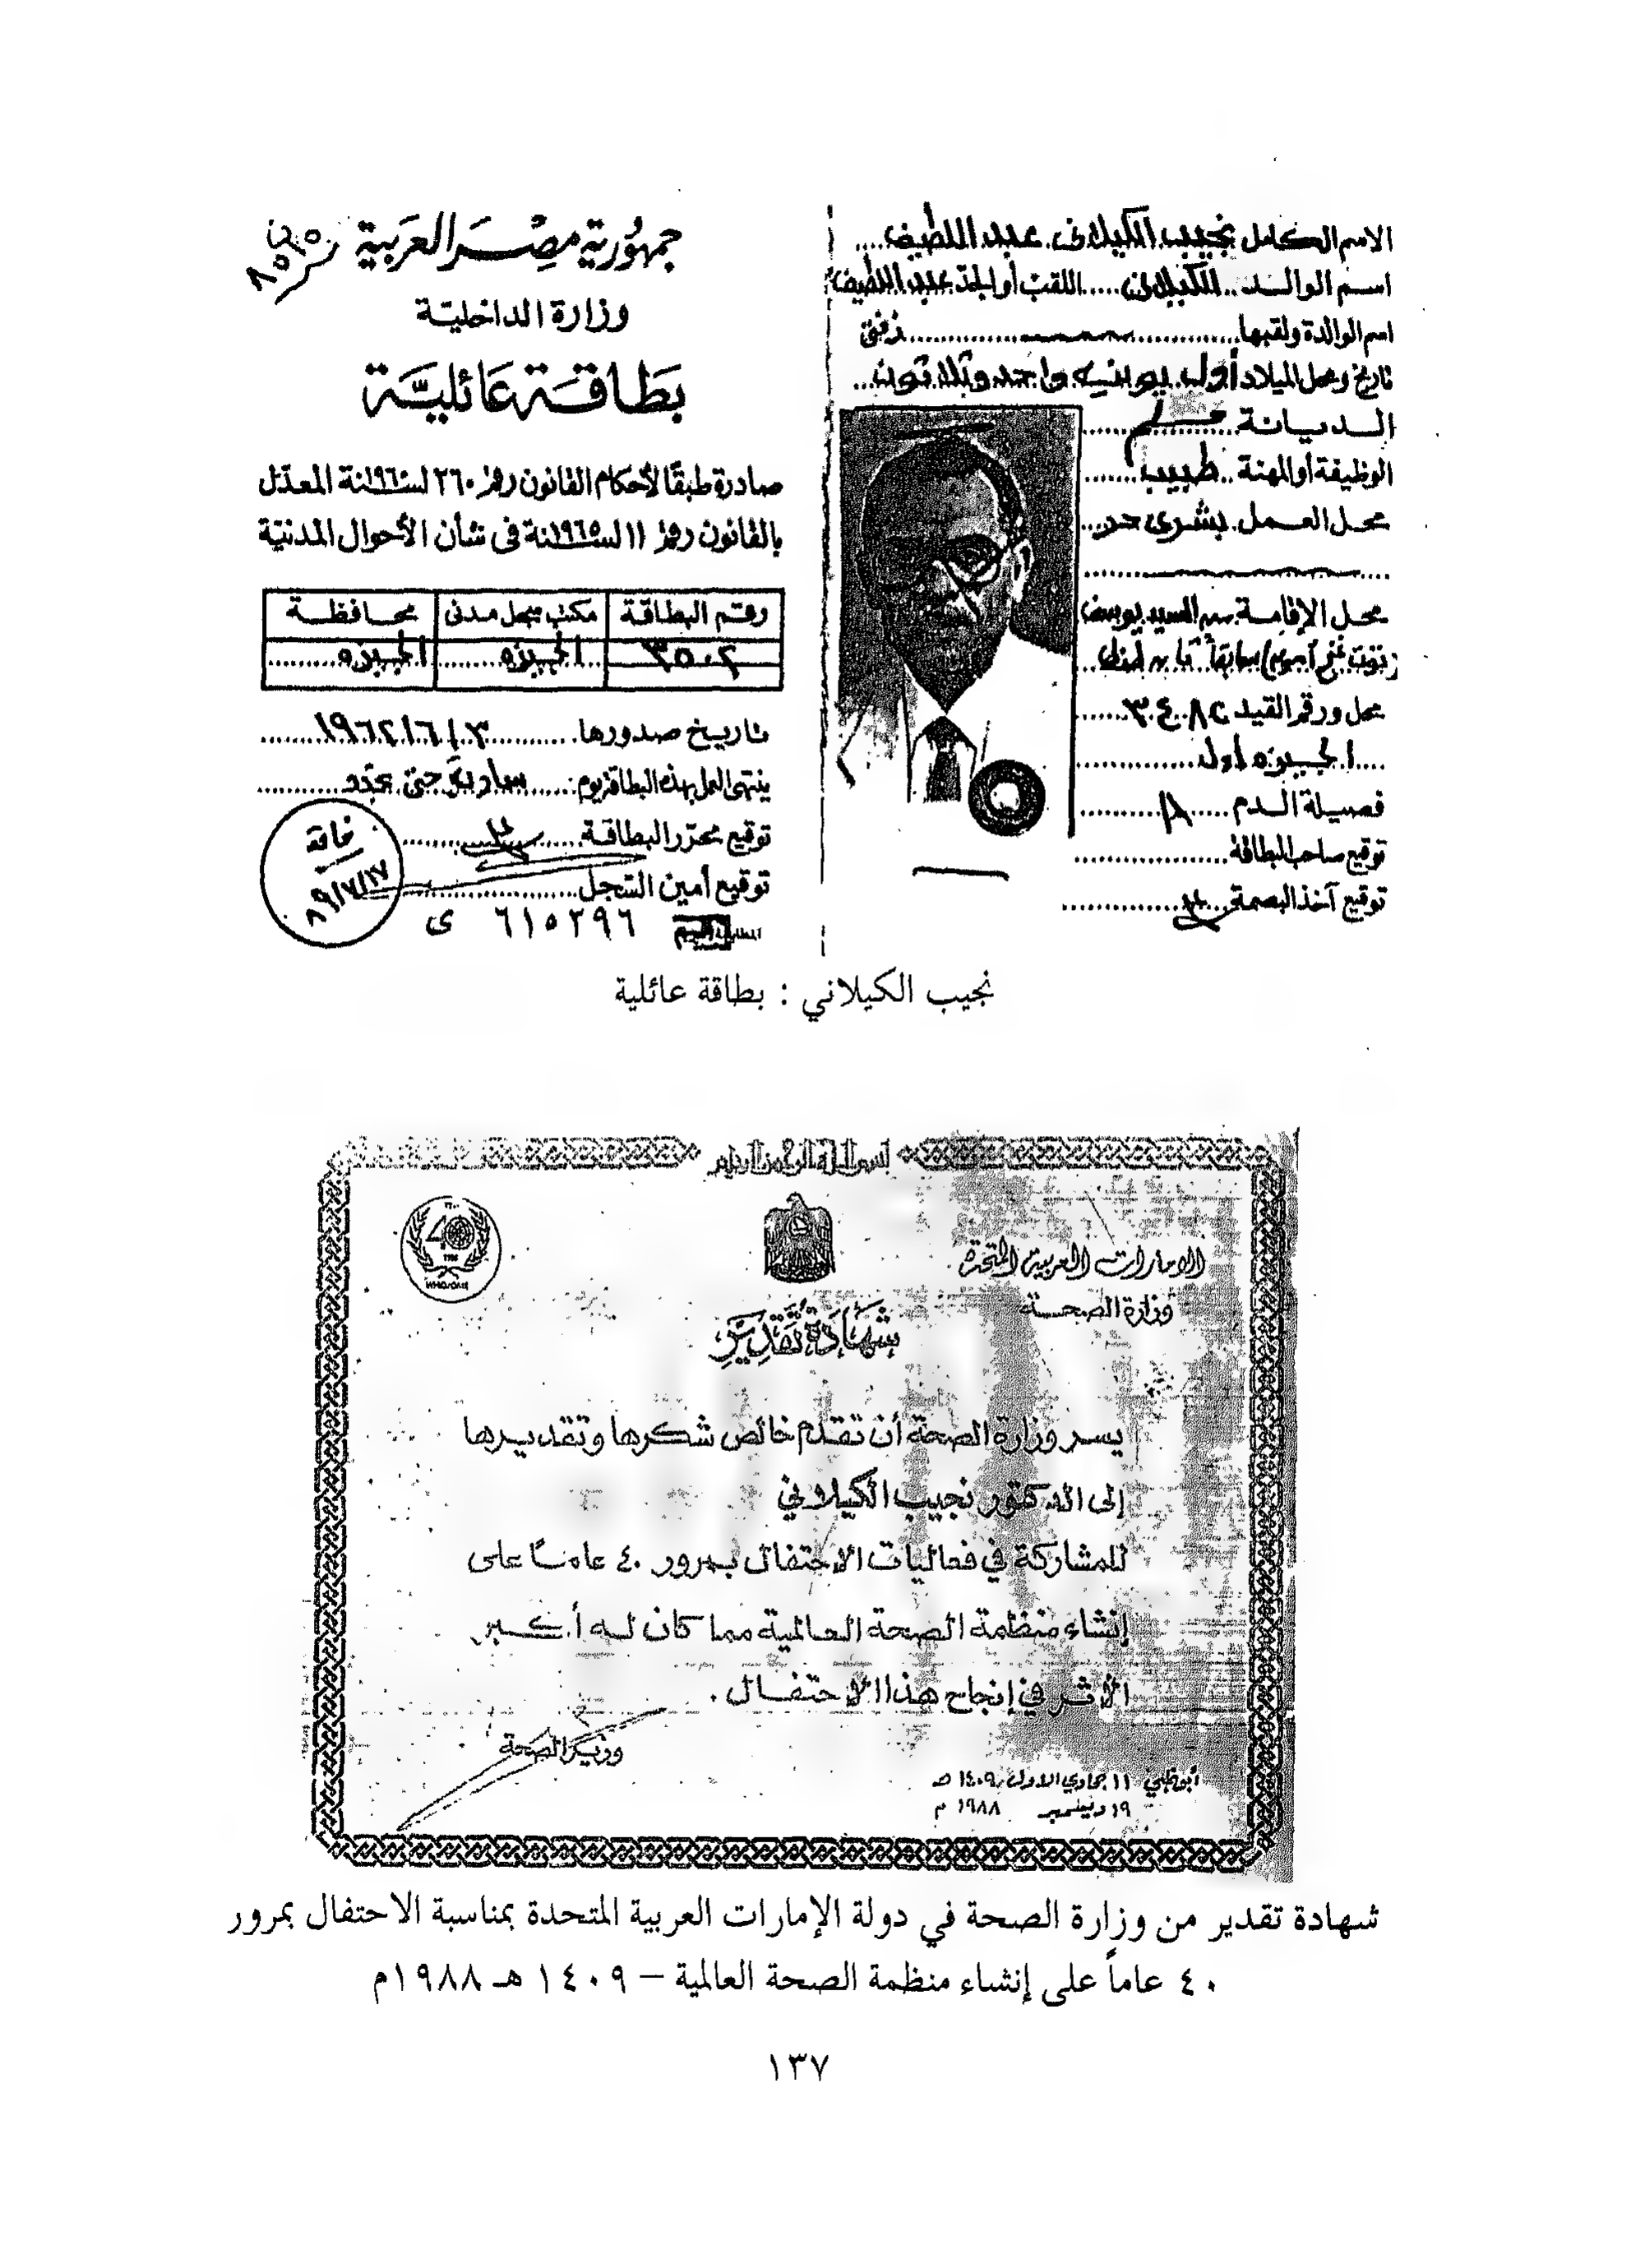 الاسم الكامل نجيب الكيلانى عبد اللطيف
اسم الوالد الكيلانى اللقب أو الجد عبد اللطيف
اسم الوالدة ولقبها
تاريخ ومحل الميلاد أول يونيه واحد وثلاثون
الديانة مسلم
الوظيفة أو المهنة طبيب
محل العمل
محل الإقامة السيد يوسف
محل ورقم القيد ٣٤٠٨٢
الجيزه أول
فصيلة الدم
توقيع صاحب البطاقة
توقيع آخذ البصمة
جمهورية مصر العربية
وزارة الداخلية
بطاقة عائلية
صادرة طبقًا لأحكام القانون رقم ٢٦٠ لسنة ١٩٦٠ المعدّل
بالقانون رقم ١١ لسنة ١٩٦٥ فى شأن الأحوال المدنيّة
رقم البطاقة مكتب سجل مدنى محافظة
٣٥٠٢ الجيزه الجيزه
تاريخ صدورها
ينتهى العمل بهذه البطاقة يوم: سارية حتى تجدد
توقيع محرّر البطاقة
توقيع أمين السّجل
٦١٥٢٩٦ ى
نجيب الكيلاني : بطاقة عائلية
بسم الله الرحمن الرحيم
الامارات العربية المتحدة
وزارة الصحة
40
شهادة تقدير
يسر وزارة الصحة أن تقدم خالص شكرها وتقديرها
إلى الدكتور نجيب الكيلاني
للمشاركة في فعاليات الاحتفال بمرور ٤٠ عامًا على
إنشاء منظمة الصحة العالمية مما كان له أكبر
الأثر في إنجاح هذا الاحتفال .
وزير الصحة
أبوظبي ١١ جمادي الاول ١٤٠٩ هـ
١٩ ديسمبر ١٩٨٨ م
شهادة تقدير من وزارة الصحة في دولة الإمارات العربية المتحدة بمناسبة الاحتفال بمرور
٤٠ عاماً على إنشاء منظمة الصحة العالمية – ١٤٠٩ هـ ١٩٨٨م
١٣٧